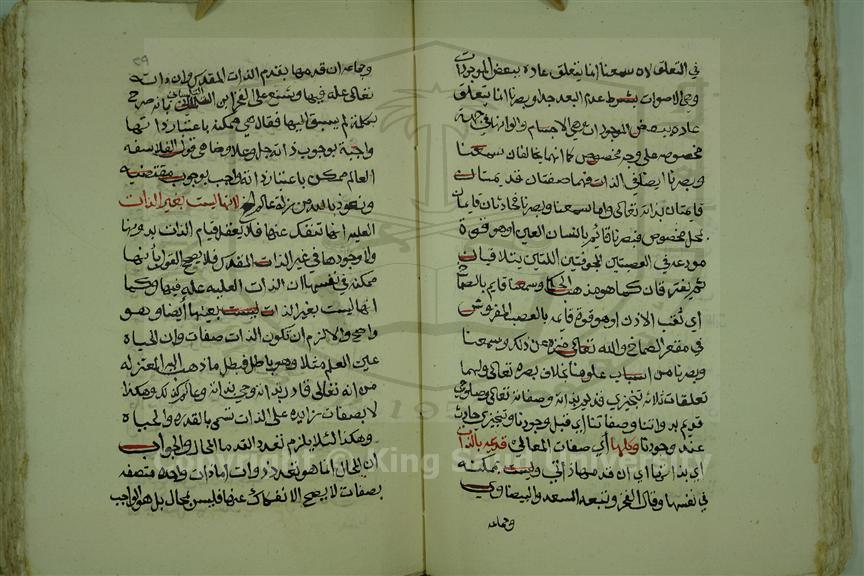 في التعلق لان سمعنا انما يتعلق عادة ببعض الموجودات
وهي الاصوات بشرط عدم البعد جدا وبصرنا انما يتعلق
عادة ببعض الموجودات وهي الاجسام والوانها في جهة
مخصوصة على وجه مخصوص كما انهما يخالفان سمعنا
وبصرنا ايضا في الذات فهما صفتان قديمتان
قايمتان بذاته تعالى واما سمعنا وبصرنا فحادثان قايمان
بمحل مخصوص فبصرنا قائم بانسان العين اذ هو قوة
مودعة في العصبتين المجوفتين اللتين يتلاقيان
ثم يفترقان كما هو مذهب الحكما وسمعنا قايم بالصماخ
اي ثقب الاذن اذ هو قوة قايمة بالعصب المفروش
في مقعر الصماخ والله تعالى منزه عن ذلك وسمعنا
وبصرنا من اسباب علومنا بخلاف بصره تعالى ولهما
تعلقات ثلاثة تنجيزي قديم بذاته وصفاته تعالى وصلوحي
قديم بذواتنا وصفاتنا اي قبل وجودنا وتنجيزي حادث
عند وجودنا وكلها اي صفات المعاني قديمة بالذات
اي بذاتها اي ان قدمها ذاتي وليست ممكنة
في نفسها وقال الفخر وتبعه السعد والبيضاوي
وجماعة
٢٩
وجماعة ان قدمها بقدم الذات المقدس وان ذاته
تعالى علة فيها وشنع على الفخر ابن التلمساني بانه صرح
بكلمة لم يسبق اليها فقال هي ممكنة باعتبار ذاتها
واجبة بوجوب ذاته جل وعلا وضاهى قول الفلاسفة
العالم ممكن باعتبار ذاته واجب بوجوب مقتضيه
ونعوذ بالله من زلة عالم لانها ليست بغير الذات
العلية انها تنفك عنها فلا يعقل قيام الذات بدونها
ولا وجودها في غير الذات المقدس فلا يصح القول بانها
ممكنة في نفسها ان الذات العلية علة فيها وكما
انها ليست بغير الذات ليست بعينها ايضا وهو
واضح والا لزم ان تكون الذات صفات وان الحياة
عين العلم مثلا وهو باطل فبطل ما ذهب اليه المعتزلة
من انه تعالى قادر بذاته وحي بذاته وعالم كذلك وهكذا
لا بصفات زايدة على الذات تسمى بالقدرة والحياة
وهكذا لئلا يلزم تعدد القدما المحال والجواب
ان المحال انما هو تعدد ذوات اما ذات واحدة متصفة
بصفات لا يصح الانفكاك عنها فليس بمحال بل هو الواجب